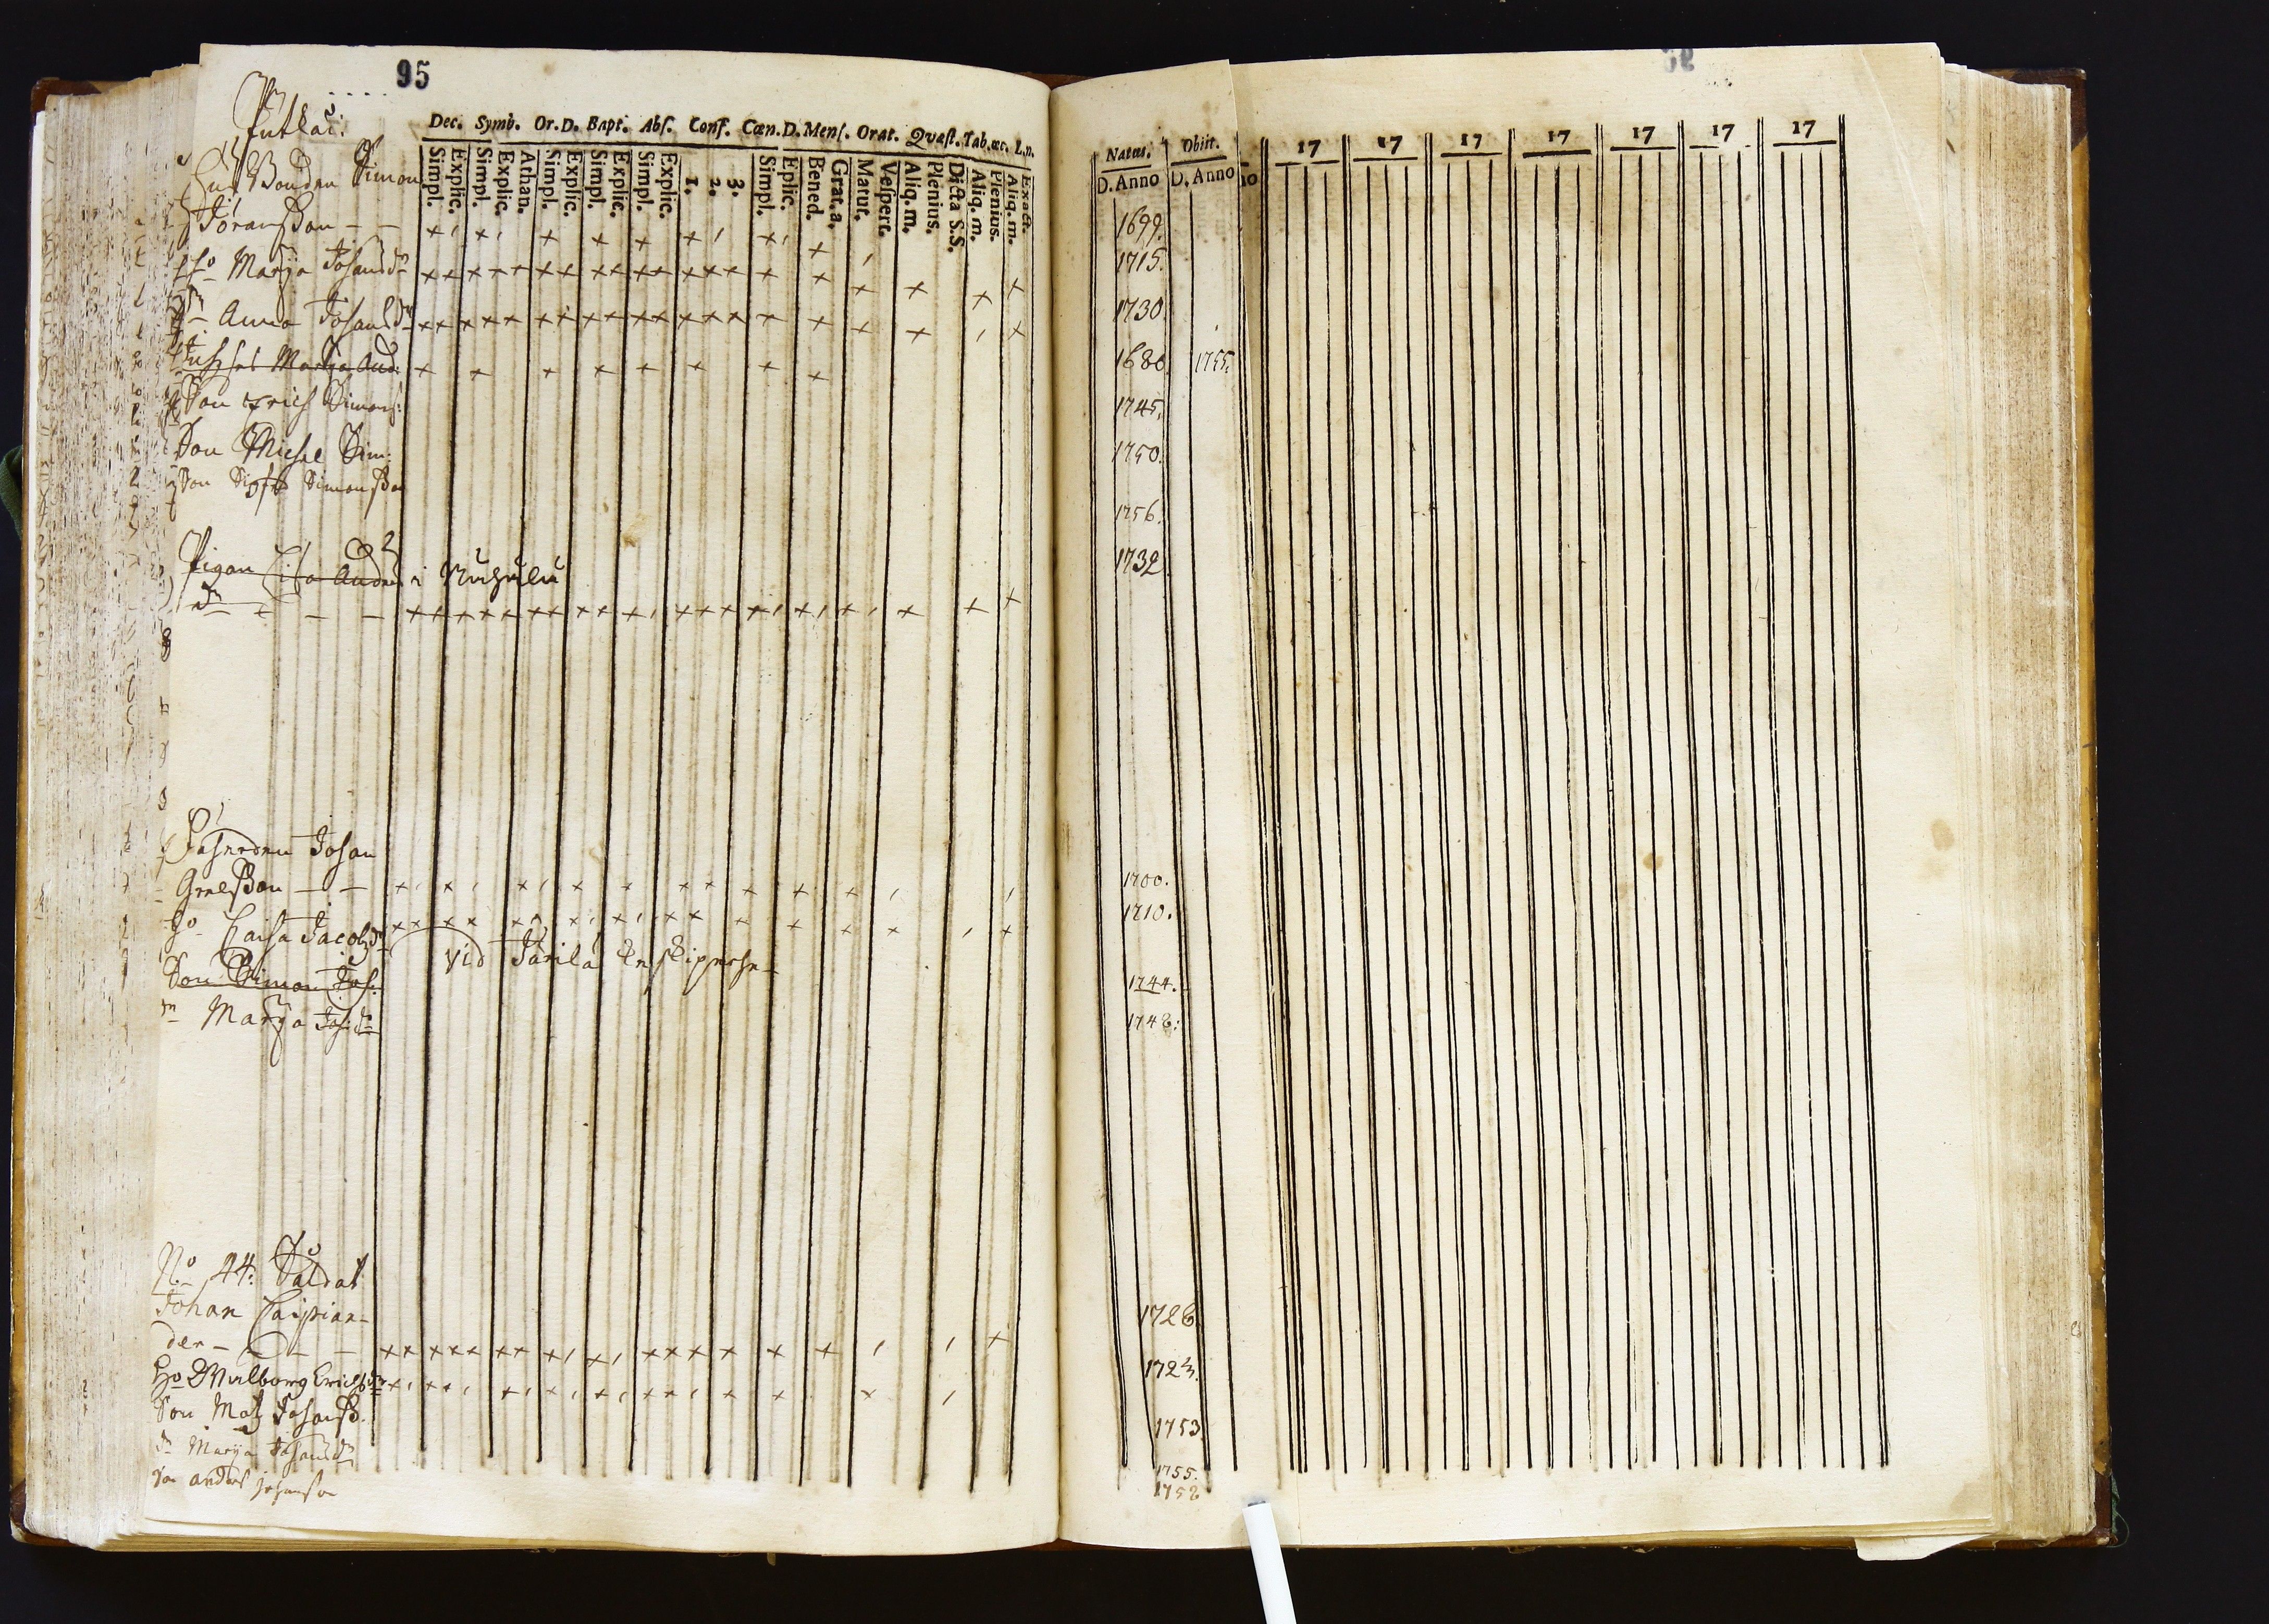 95
Dec. Symb. Or. D. Bapt. Abs. Conf. Cœn. D. Mens. Orat. Qvæst. Tab. œc. L.n.
Simpl. Explic. Simpl. Explic. Athan. Simpl. Explic. Simpl. Explic. Simpl. Explic. 1. 2. 3. Simpl. Eplic. Bened. Grat. a. Matut. Vespert. Aliq. m. Plenius. Dicta S.S. Aliq. m. Plenius. Aliq. m. Exact.
Bonden Simon
Jöransson - -
Ho Marja Johansdr
Dr Anna Johansdr
Marja And:
Son Erich Simonss:
Son Michel Sim:
Son Simonsson
Pigan Lisa Anders i
dr - - -
Johan
Grelsson - -
Ho Caisa Jacobsdr
vid Järilä
Son Simon Joh:
Dr Marja Joh:dr
No 44. Saldat
Johan Caipian-
der - - -
Ho Walborg Erichsdr
Son Mats Johanss.
Dr Marja Johansdr
Son anders johansson
Natus. Obiit. 17 17 17 17 17 17 17
D. Anno D. Anno
1699.
1715.
1730.
1680. 1755.
1745.
1750.
1756.
1732
1700.
1710.
1744.
1748.
1726
1723.
1753.
1755.
1758